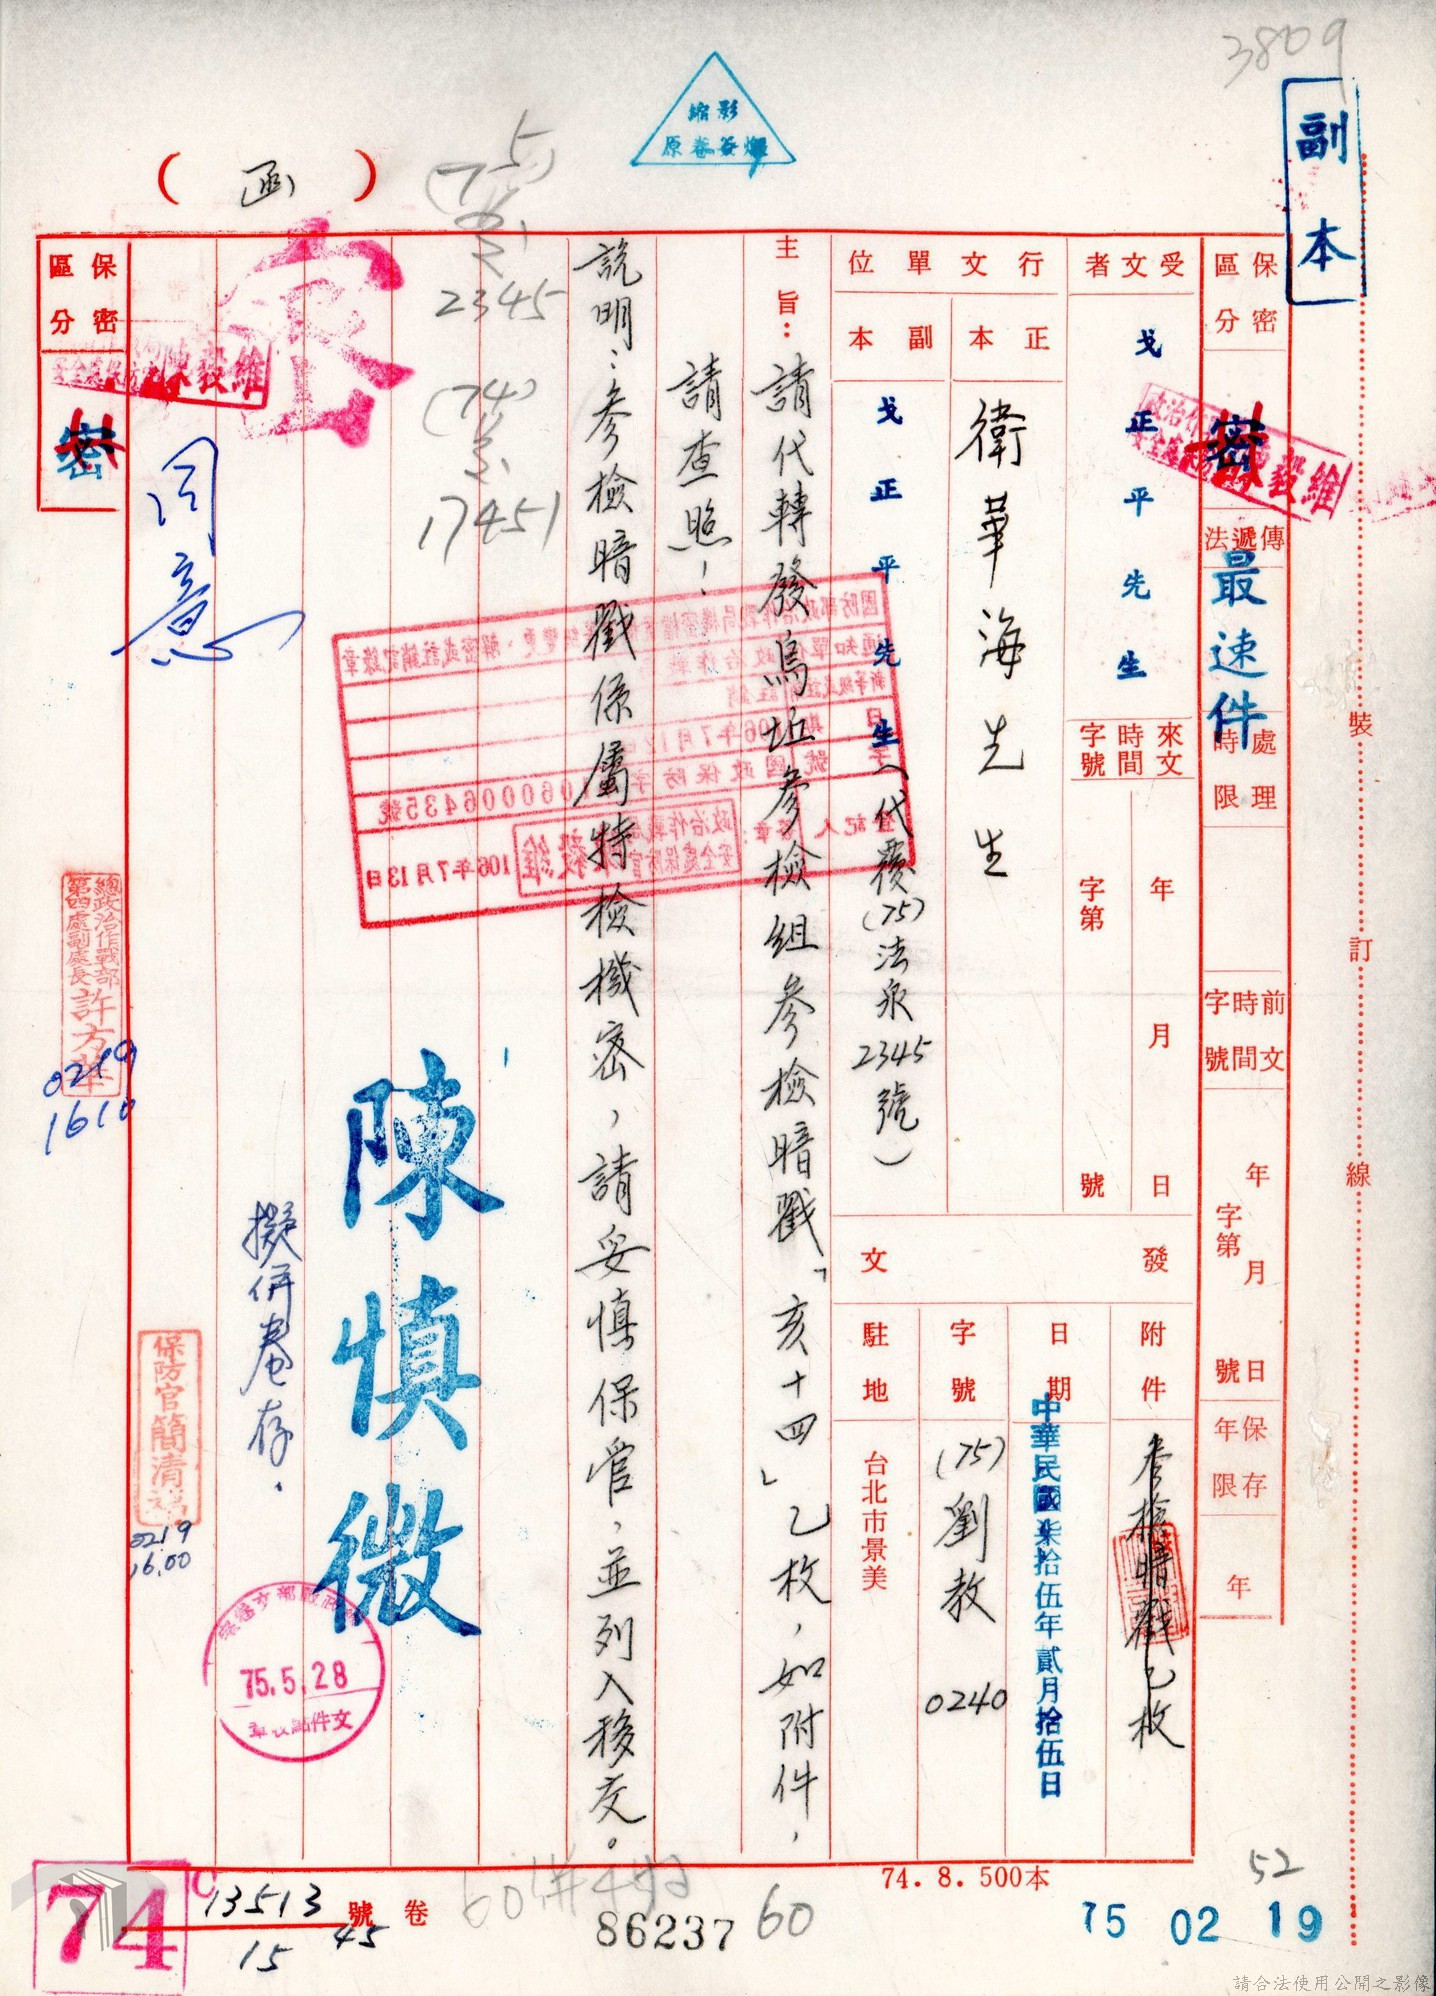 3809
副本
影縮
(函)
保密區分
密
傳遞法
最速件
處理時限
前文時間字號
年 月 日
字第 號
保存年限
年
受文者
戈正平先生
來文時間字號
年 月 日
字第 號
行文單位
正本
衛華海先生
副本
戈正平先生(代覆(75)法泉2345號)
發文
附件
參檢暗戳乙枚
日期
中華民國柒拾伍年貳月拾伍日
字號
(75)劉教0240
駐地
台北市景美
主旨:請代轉發烏坵參檢組參檢暗戳「亥十四」乙枚,如附件,
請查照!
說明:參檢暗戳係屬特檢機密,請妥慎保管,並列入移交。
(75)
2345
(74)
17451
陳慎微
擬併卷存.
保防官簡清
0219
16.00
同意
總政治作戰部
第四處副處長許方華
0219
1610
保密區分
密
國政保防字
1060006435號
106年7月13日
75.5.28
文件點收章
74
13513
15
45
號卷
60併4
86237
60
74.8.500本
52
75 02 19
裝
訂
線
請合法使用公開之影像